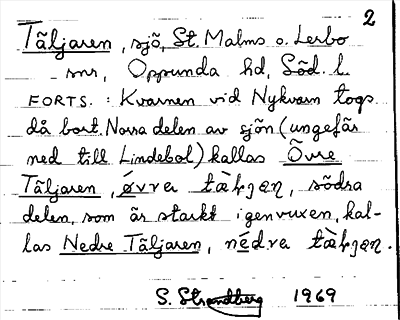 2
Täljaren, sjö, St. Malms o. Lerbo
snr, Oppunda hd, Söd. l.
FORTS.: Kvarnen vid Nykvarn togs
då bort. Norra delen av sjön (ungefär
ned till Lindebol) kallas Övre
Täljaren, øvra tæ̀ljaɲ, södra
delen, som är starkt igenvuxen, kal-
las Nedre Täljaren, nédra tæ̀ljaɲ.
S. Strandberg 1969